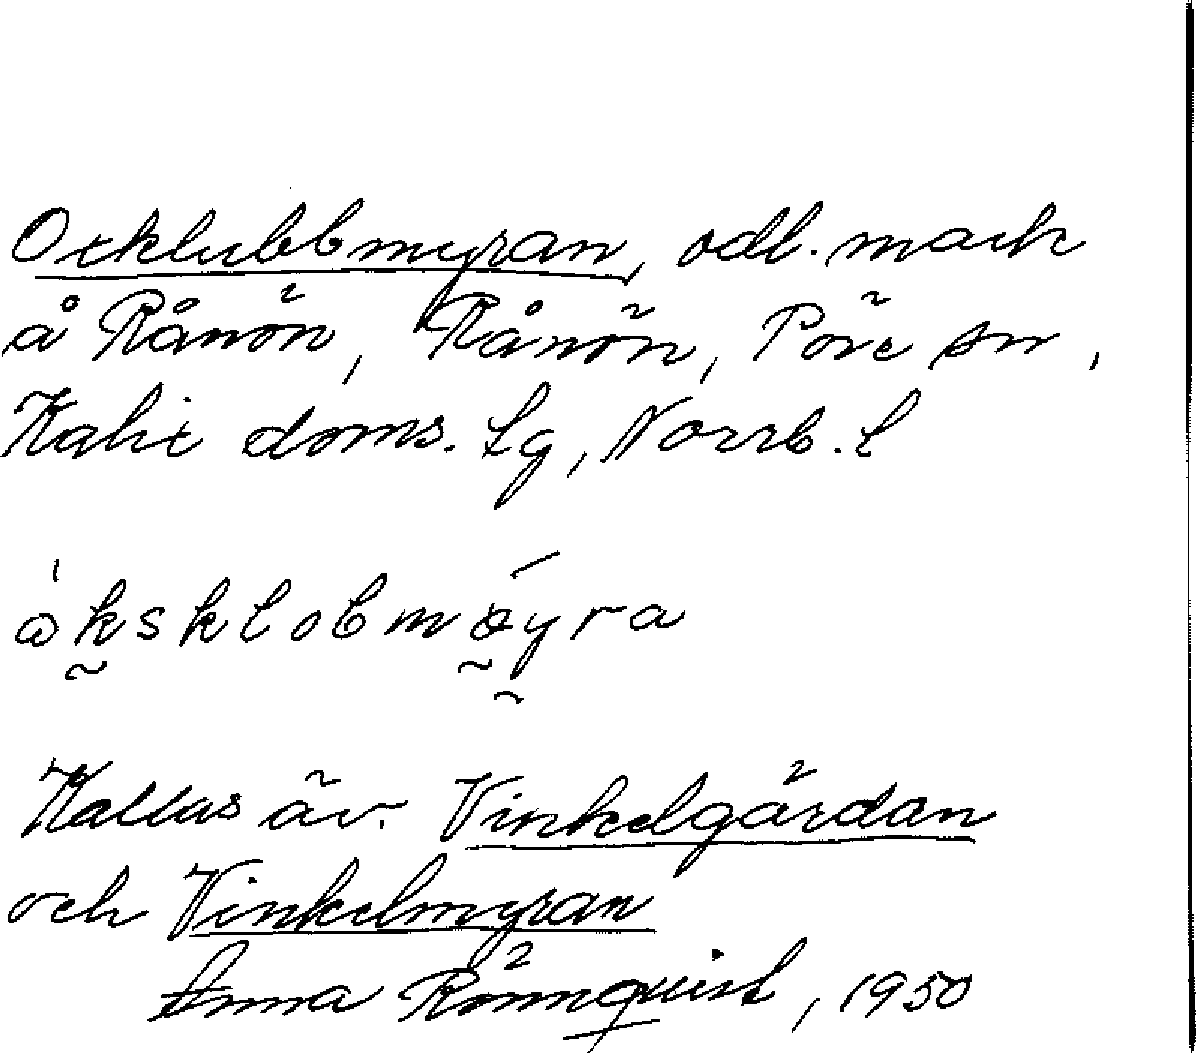 Oxklubbmyran, odl. mark
å Rånön, Rånön, Töre sn,
Kalix doms. lg, Norrb. l
Kallas äv. Vinkelgärdan
och Vinkelmyran
Anna Rönnquist, 1950